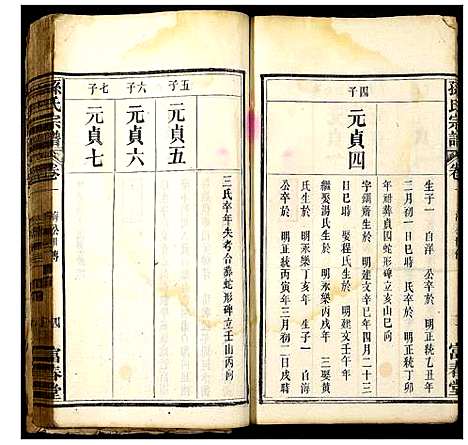 孫氏宗譜
卷一
富春堂
生子一 自洋 公卒於 明正統乙丑年
三月初一日巳時 氏卒於 明正統丁卯
年 祖葬貞四蛇形碑立亥山巳向
四子
元貞四
字鎮齋生於 明建文辛巳年四月二十三
日巳時 娶程氏生於 明建文壬午年
繼娶湯氏生於 明永樂丙戌年 三娶葉
氏生於 明永樂丁亥年 公卒於
公卒於 明正統丙寅年三月初二日戌時
三氏卒年失考合葬蛇形碑立壬山丙向
五子
元貞五
六子
元貞六
七子
元貞七
孫氏宗譜
卷一
四
富春堂